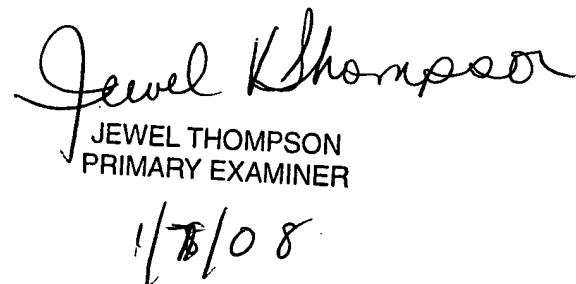 Jewel Thompson
JEWEL THOMPSON
PRIMARY EXAMINER
1/ /08